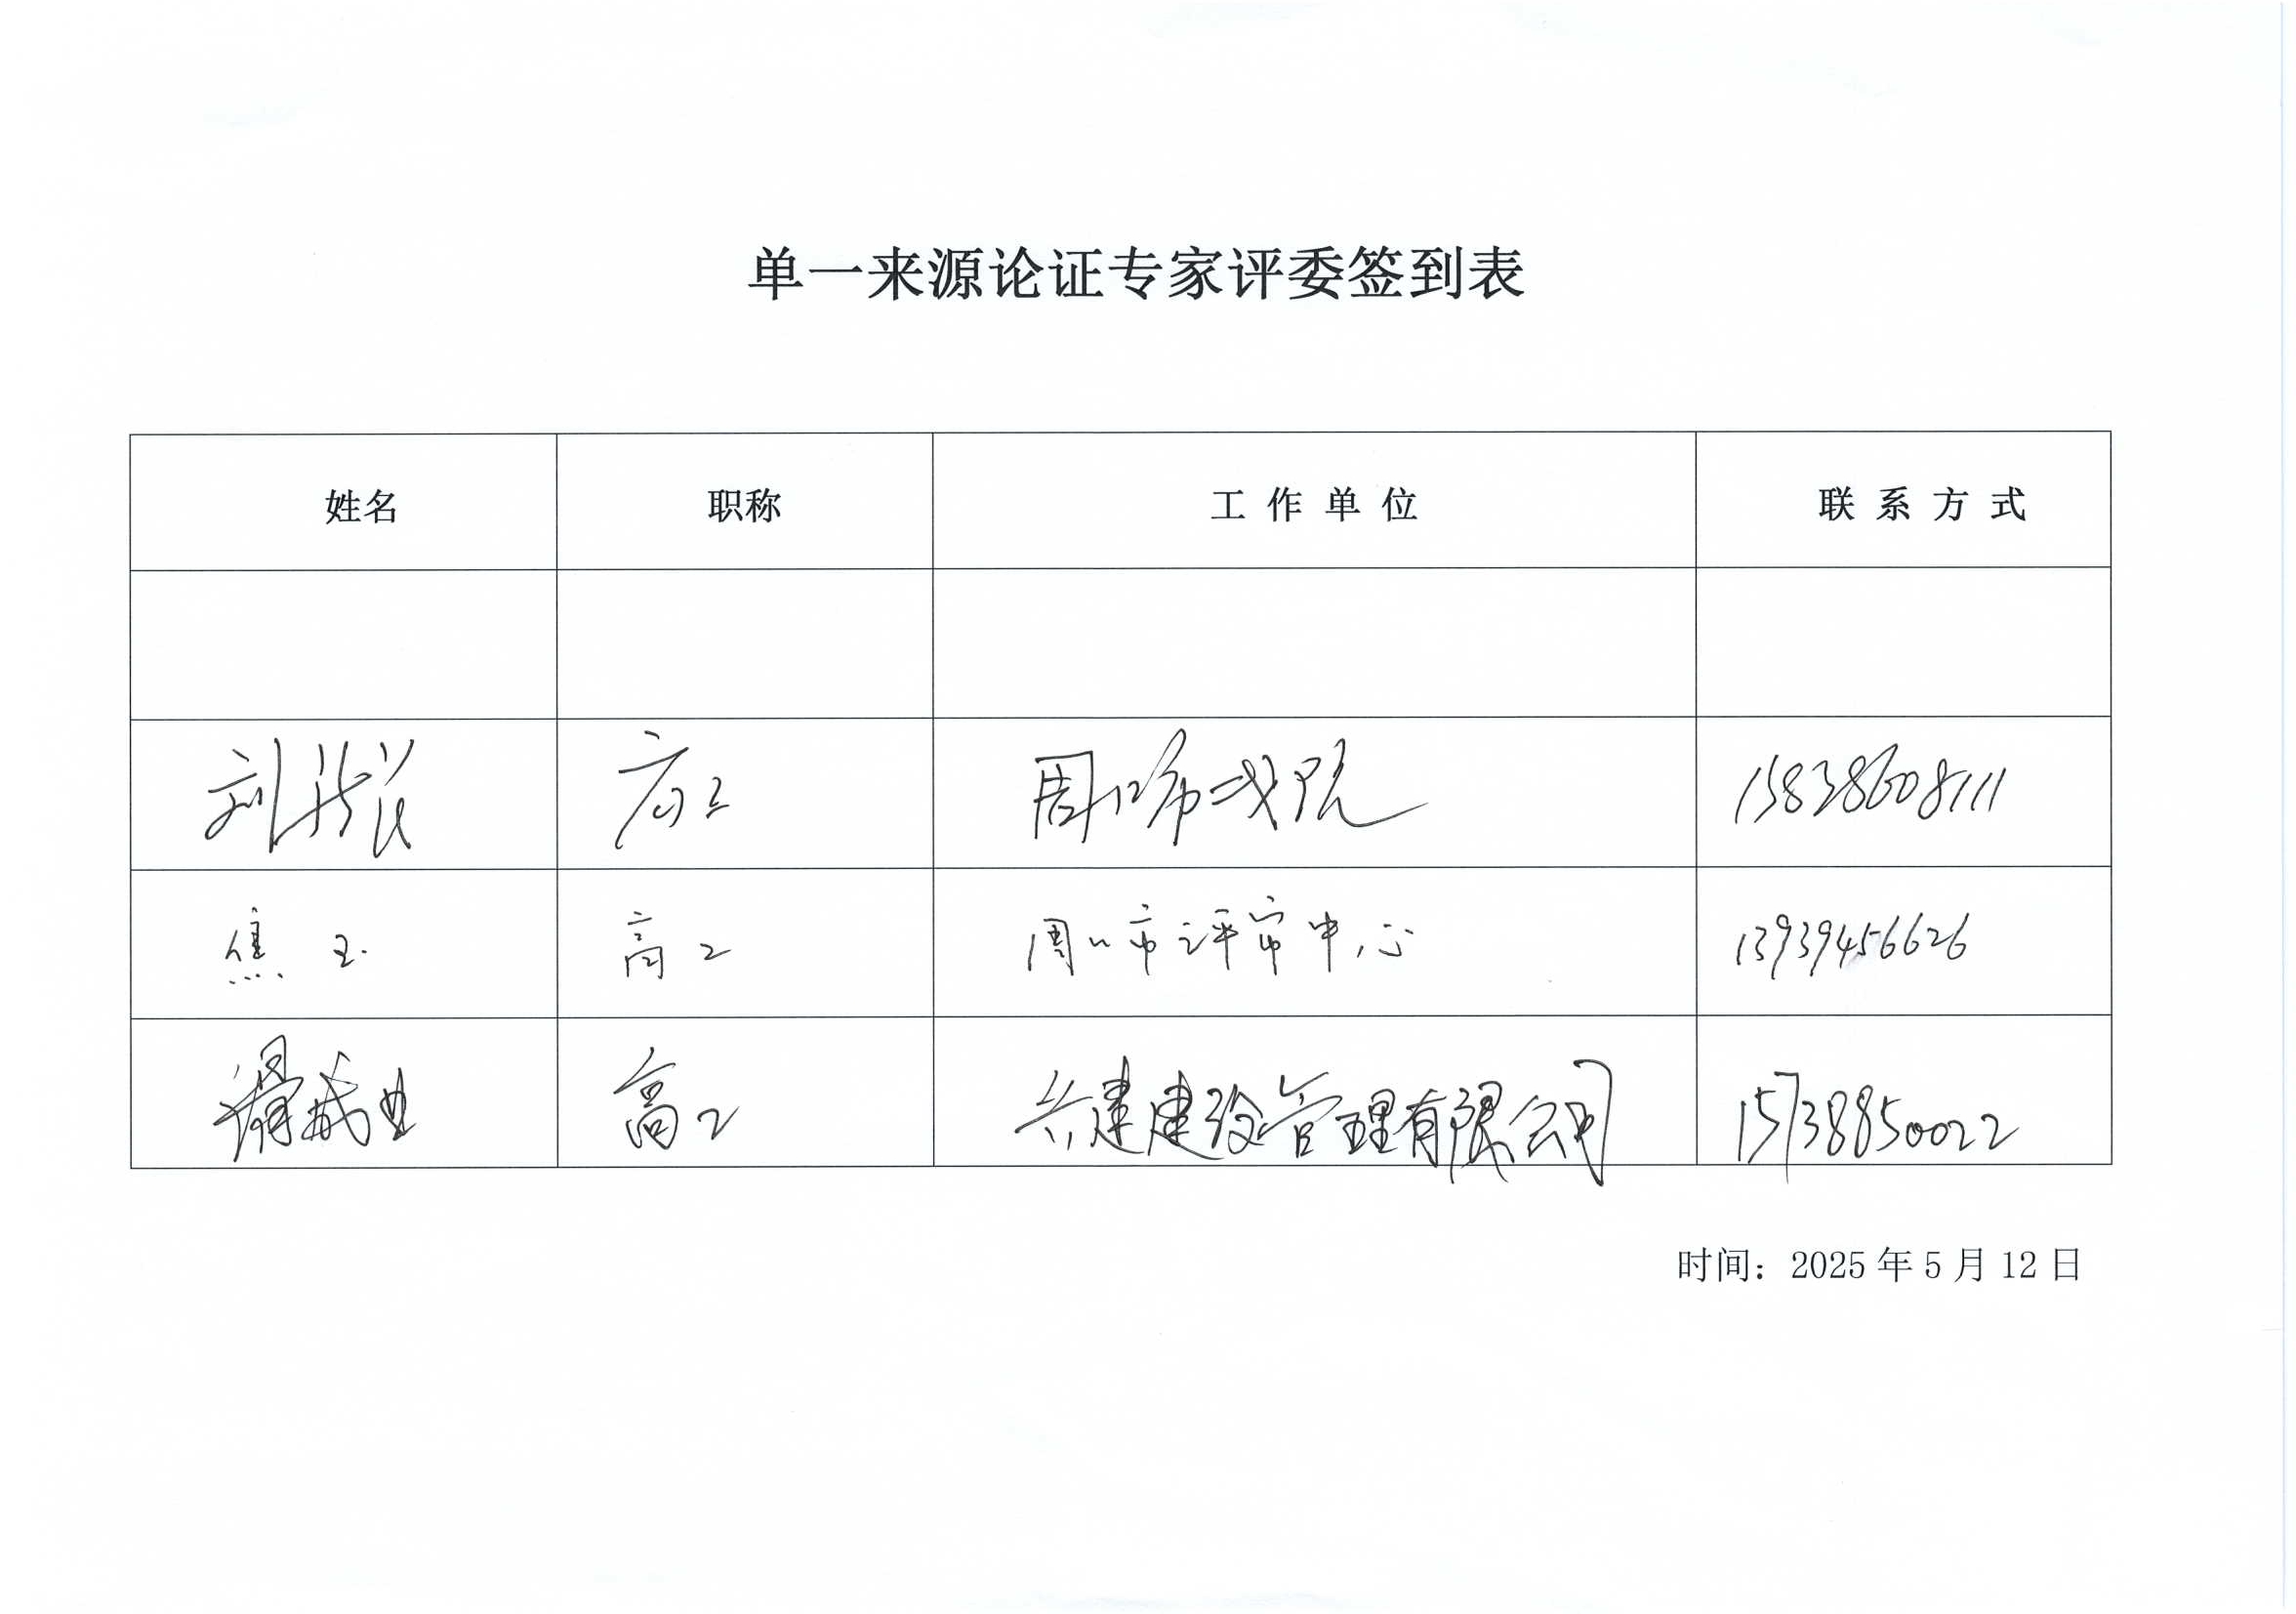 单一来源论证专家评委签到表
姓名 职称 工作单位 联系方式
刘 高工 周口市 院 15838608111
焦玉 高工 周口市评审中心 13939456626
高工 兴建建设管理有限公司 15738850022
时间：2025年5月12日